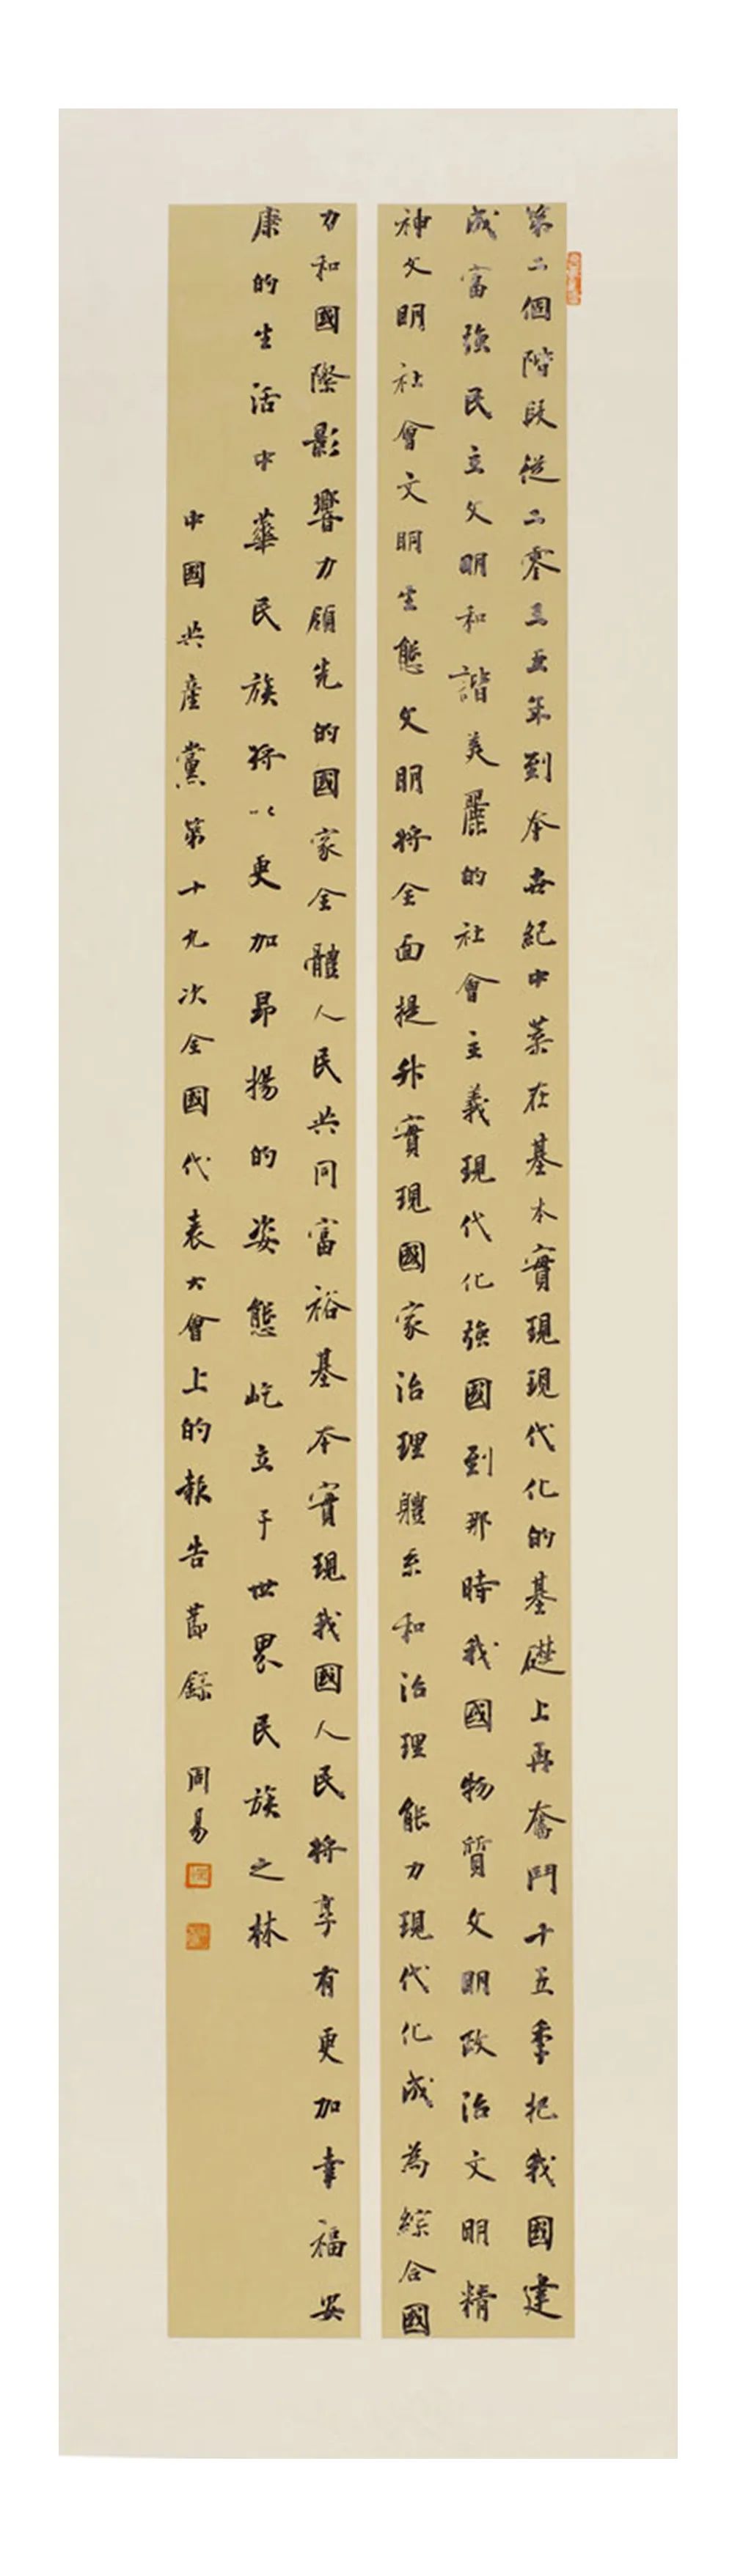 第二個階段從二零三五年到本世紀中葉在基本實現現代化的基礎上再奮鬥十五秊把我國建
成富強民主文明和諧美麗的社會主義現代化強國到那時我國物質文明政治文明精
神文明社會文明生態文明將全面提升實現國家治理體系和治理能力現代化成為綜合國
力和國際影響力領先的國家全體人民共同富裕基本實現我國人民將享有更加幸福安
康的生活中華民族將以更加昂揚的姿態屹立于世界民族之林
中國共產黨第十九次全國代表大會上的報告節錄 周易